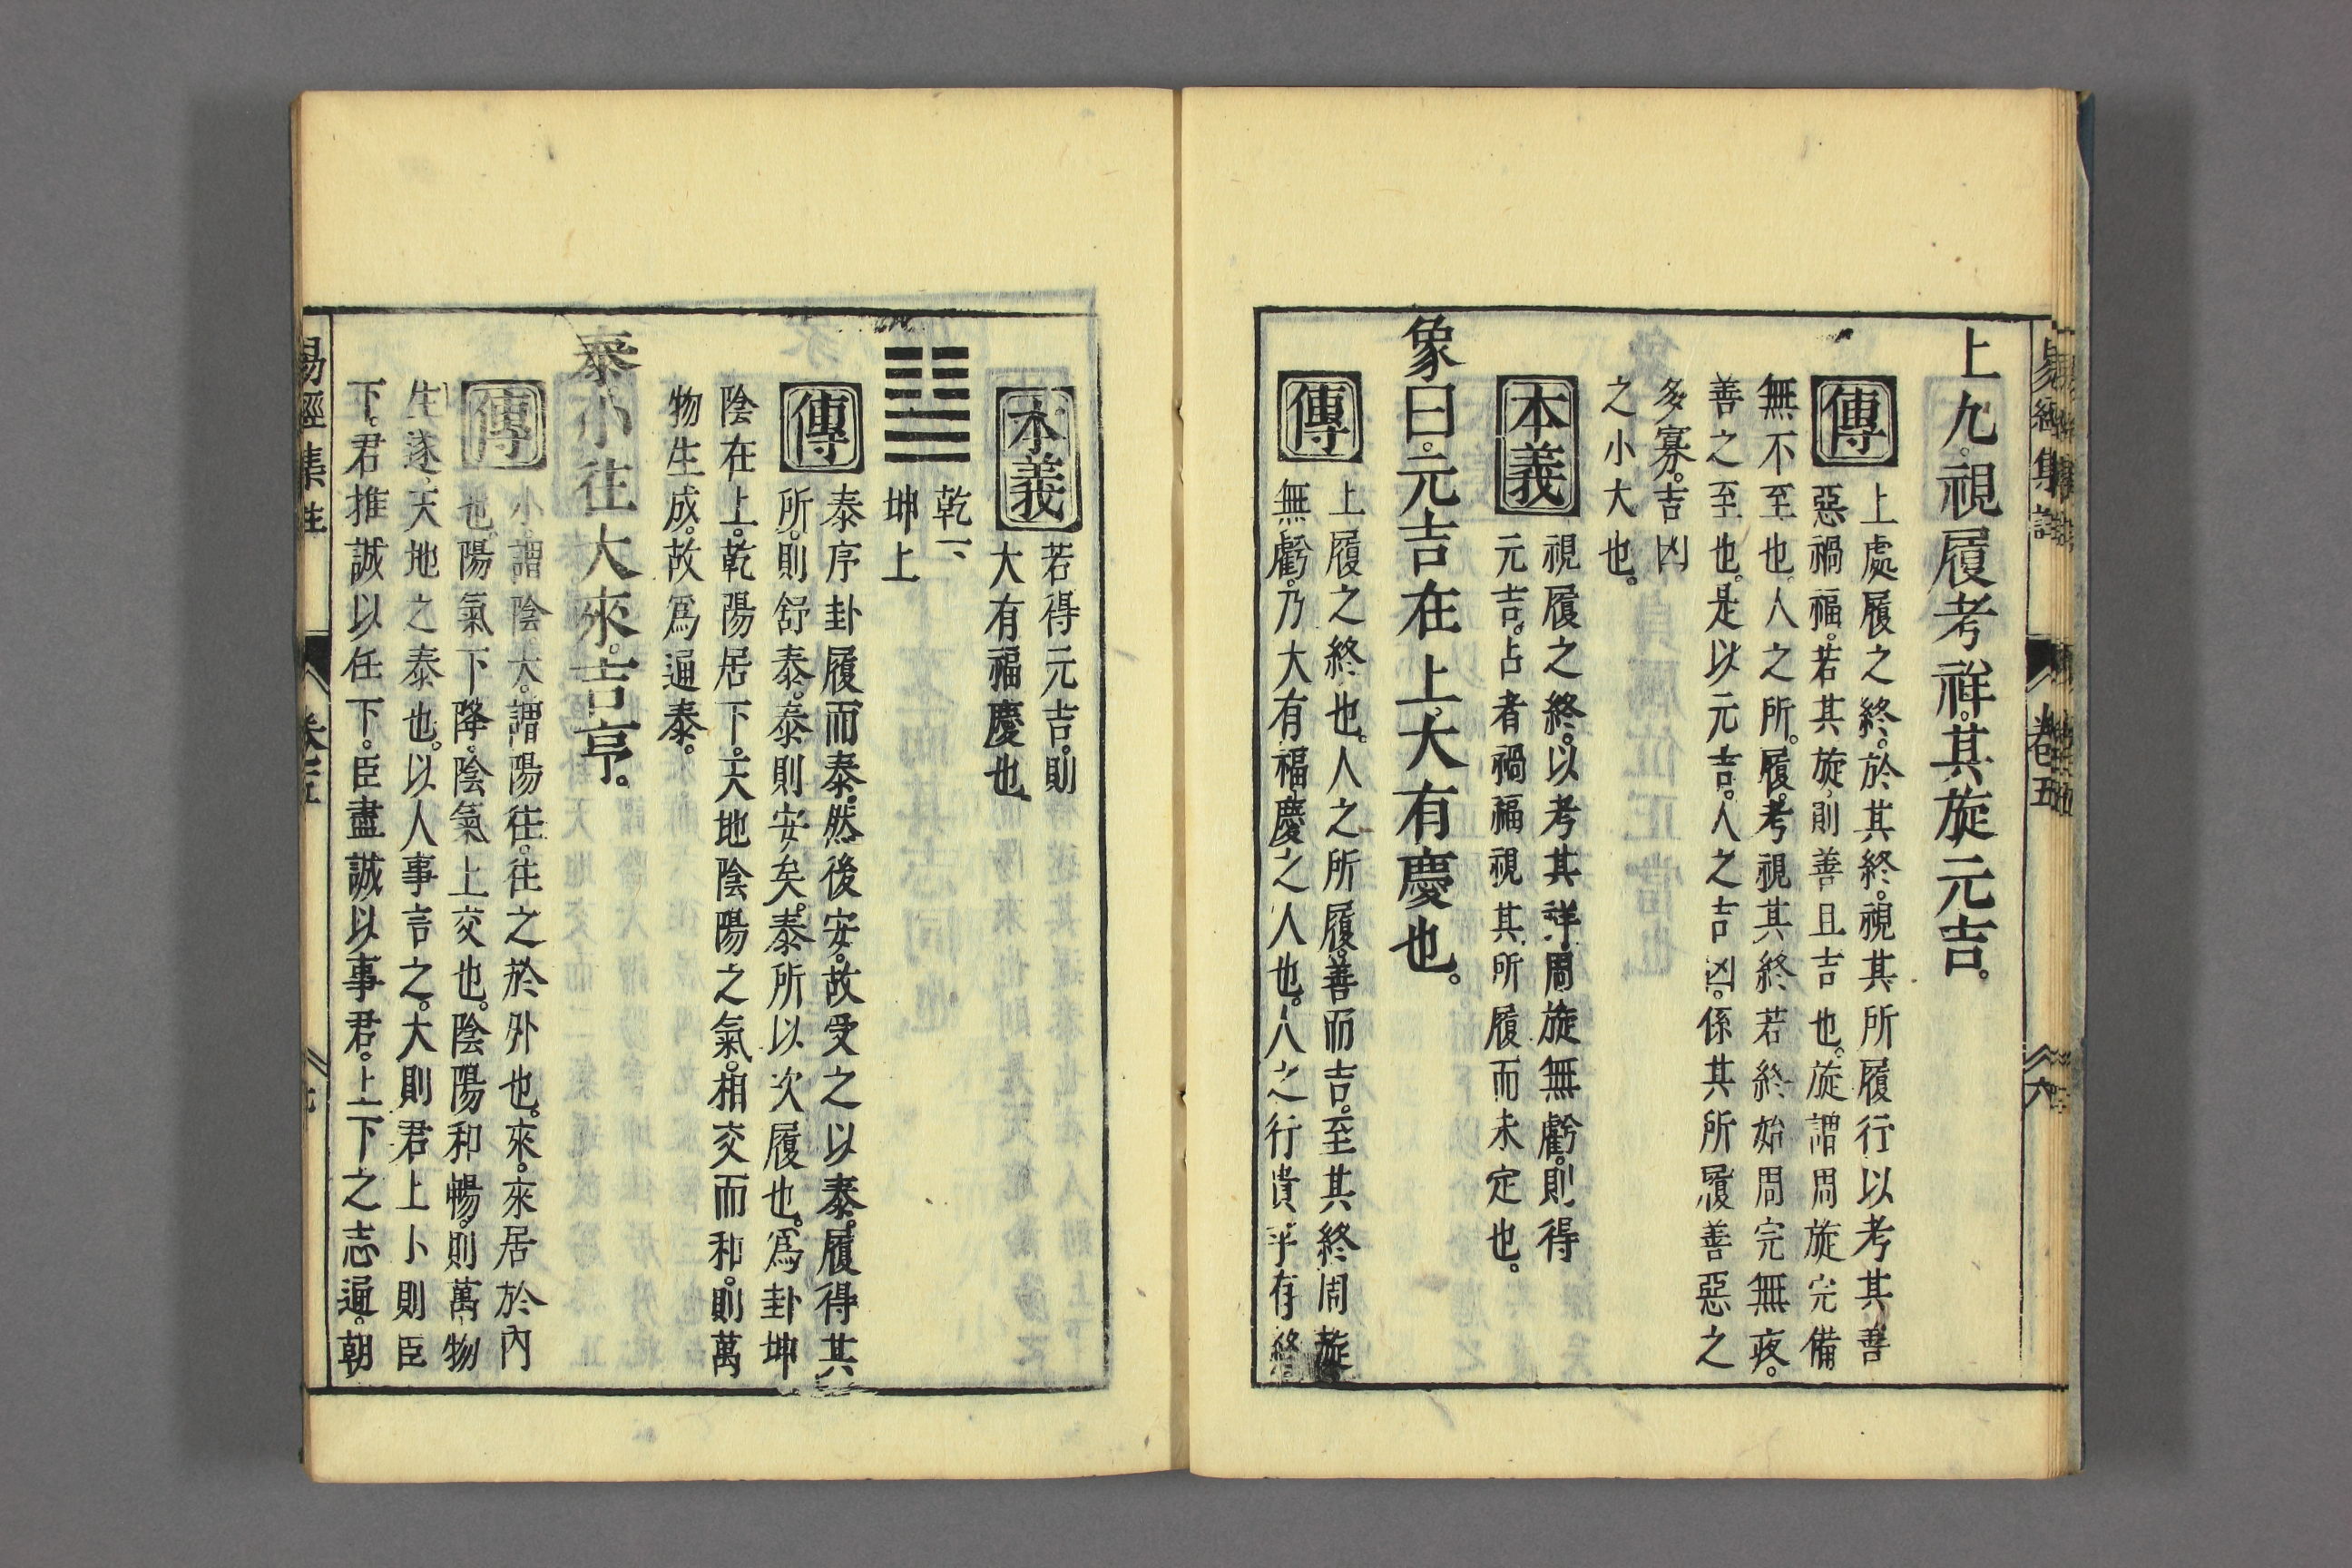 易經集註 卷五 六
上九。視履考祥。其旋元吉。
傳
上處履之終。於其終。視其所履行以考其善
惡禍福。若其旋。則善且吉也。旋謂周旋完備
無不至也。人之所。履。考視其終若終始周完無疚。
善之至也。是以元吉。人之吉凶。係其所履善惡之
多寡。吉凶
之小大也。
本義
視履之終。以考其祥周旋無虧。則得
元吉。占者禍福視其所履而未定也。
象曰。元吉在上。大有慶也。
傳
上履之終也。人之所履。善而吉。至其終周旋
無虧。乃大有福慶之人也。人之行貴乎有終。
本義
若得元吉。則
大有福慶也
乾下
坤上
傳
泰序卦履而泰。然後安。故受之以泰。履得其
所。則舒泰。泰則安矣。泰所以次履也。爲卦坤
陰在上。乾陽居下。天地陰陽之氣。相交而和。則萬
物生成。故爲通泰。
泰小往大來。吉亨。
傳
小。謂陰。大。謂陽往。往之於外也。來。來居於內
也。陽氣下降。陰氣上交也。陰陽和暢。則萬物
生遂。天地之泰也。以人事言之。大則君上小則臣
下。君推誠以任下。臣盡誠以事君。上下之志通。朝
易經集註 卷五 七